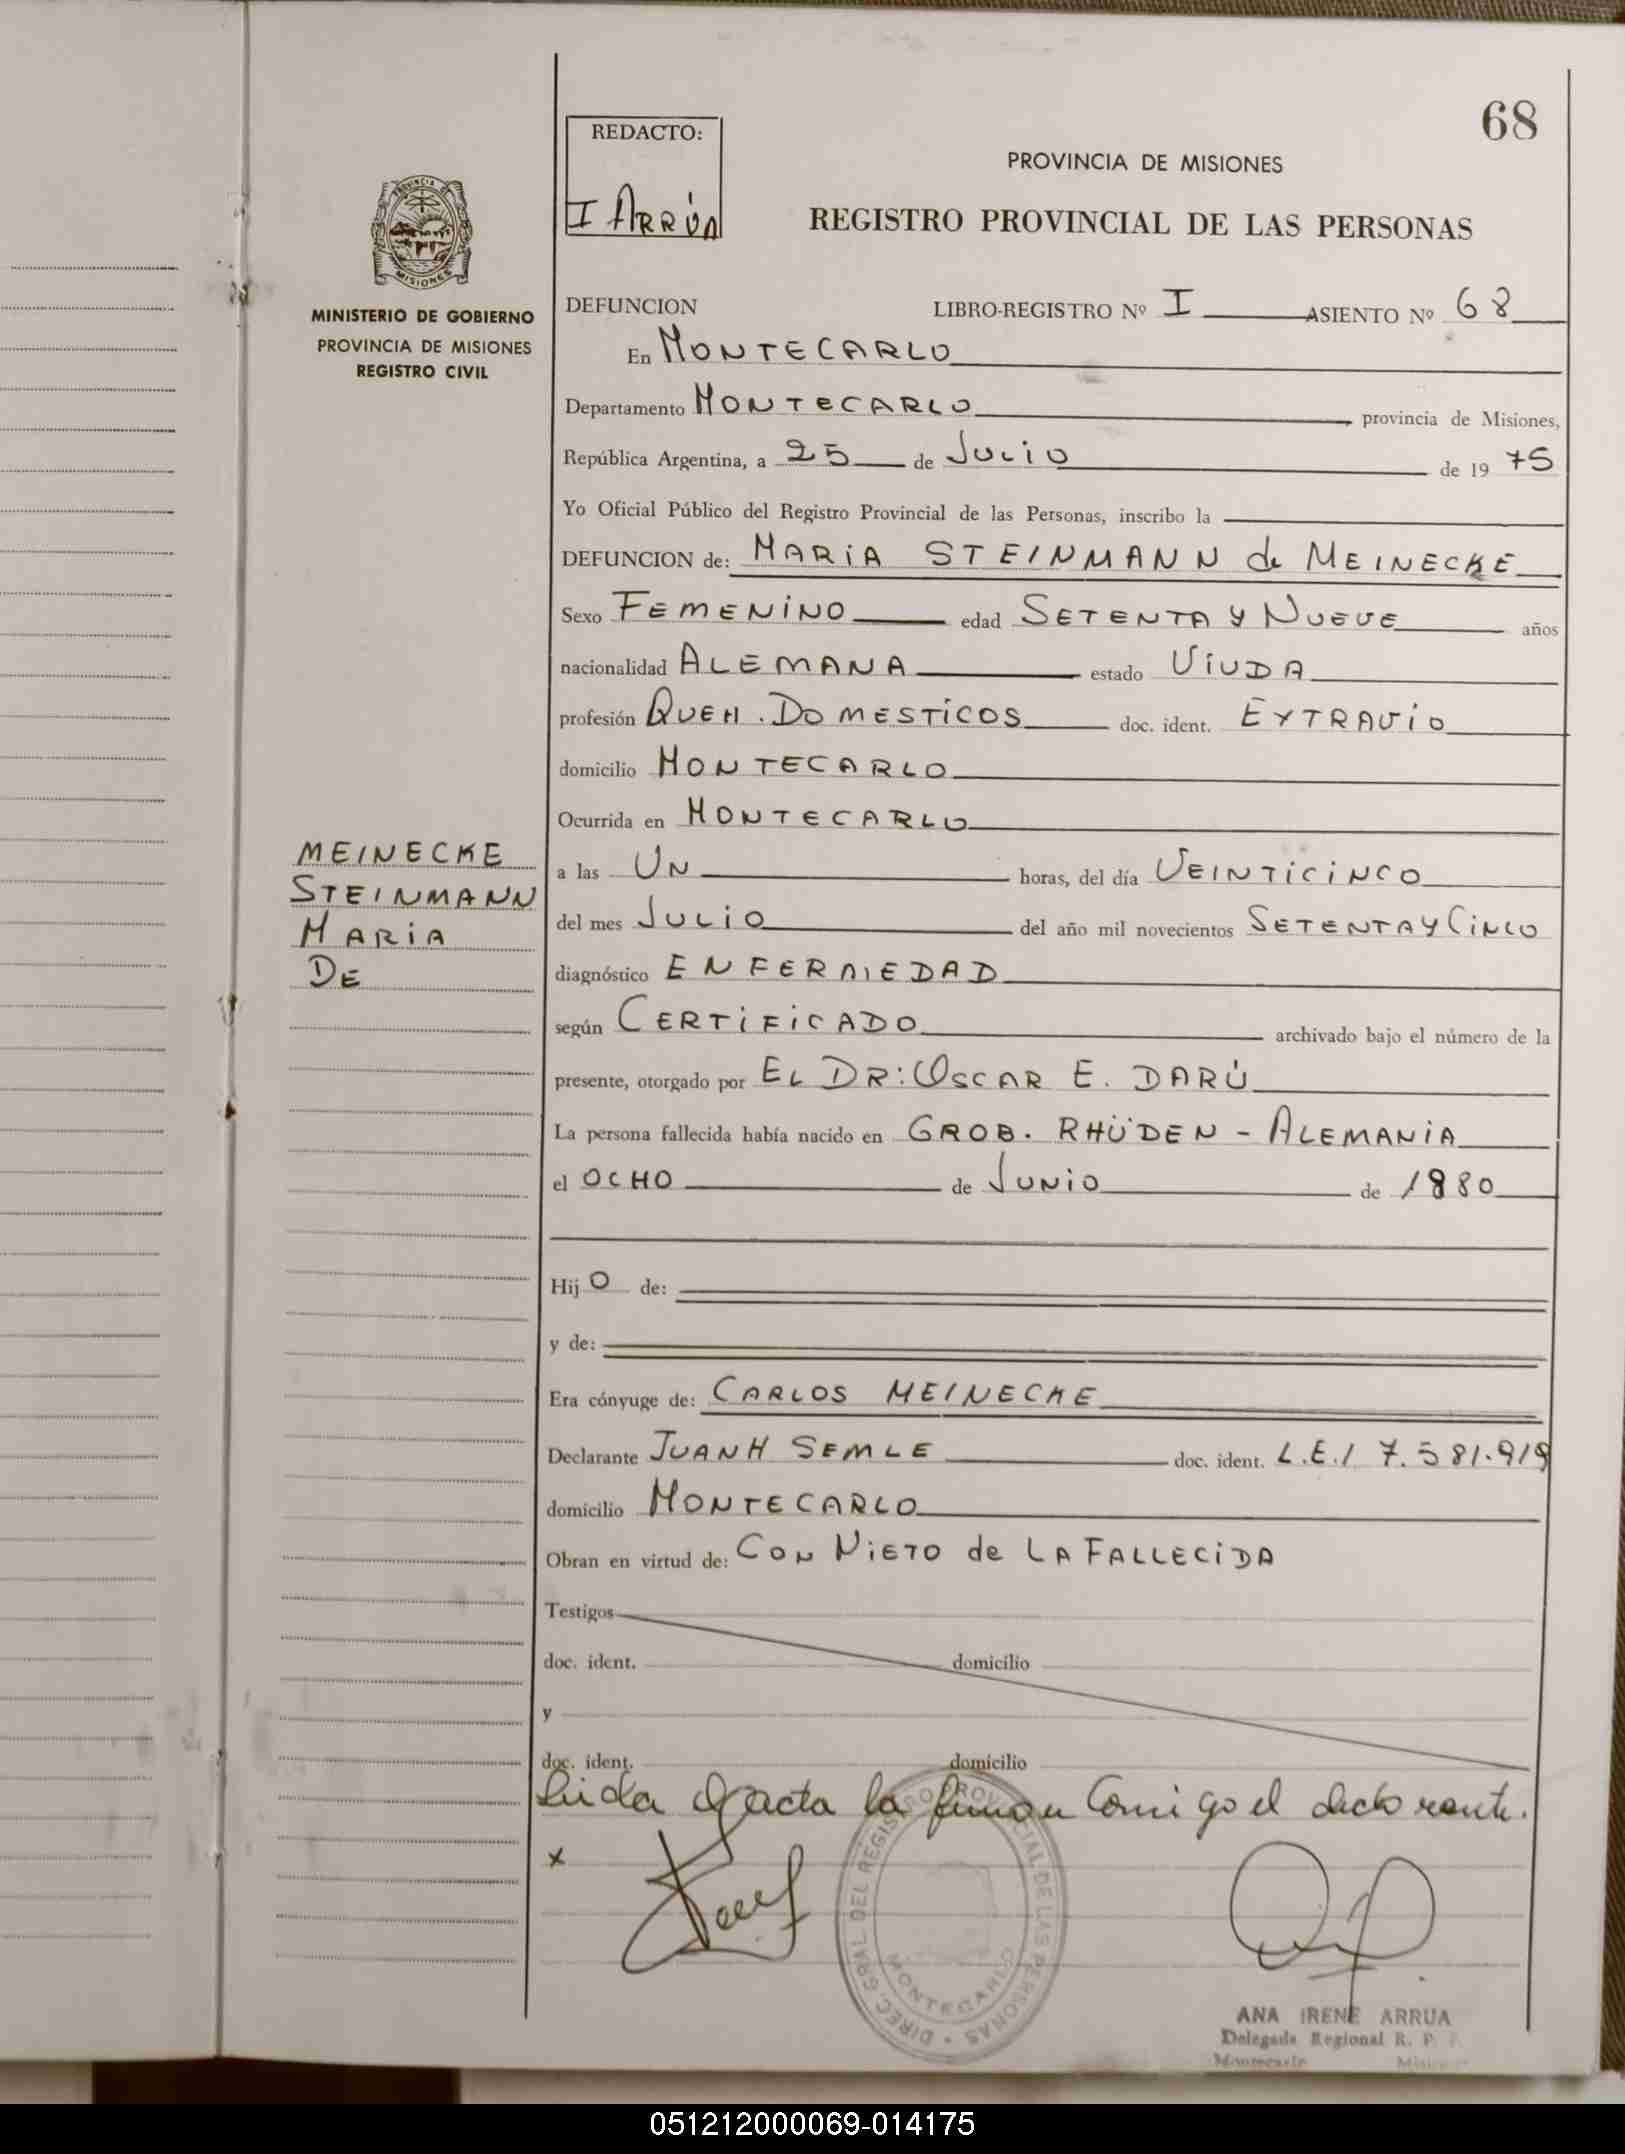 68
REDACTO:
I ARRÚA
PROVINCIA DE MISIONES
REGISTRO PROVINCIAL DE LAS PERSONAS
PROVINCIA DE
MISIONES
MINISTERIO DE GOBIERNO
PROVINCIA DE MISIONES
REGISTRO CIVIL
DEFUNCION LIBRO-REGISTRO Nº I ASIENTO Nº 68
En MONTECARLO
Departamento MONTECARLO provincia de Misiones,
República Argentina, a 25 de JULIO de 19 75
Yo Oficial Público del Registro Provincial de las Personas, inscribo la
DEFUNCION de: MARIA STEINMANN de MEINECKE
Sexo FEMENINO edad SETENTA Y NUEVE años
nacionalidad ALEMANA estado VIUDA
profesión QUEH. DOMESTICOS doc. ident. EXTRAVIO
domicilio MONTECARLO
Ocurrida en MONTECARLO
MEINECKE
STEINMANN
MARIA
DE
a las UN horas, del día VEINTICINCO
del mes JULIO del año mil novecientos SETENTA Y CINCO
diagnóstico ENFERMEDAD
según CERTIFICADO archivado bajo el número de la
presente, otorgado por EL DR: OSCAR E. DARÚ
La persona fallecida había nacido en GROB. RHÜDEN - ALEMANIA
el OCHO de JUNIO de 1880
Hij O de:
y de:
Era cónyuge de: CARLOS MEINECKE
Declarante JUAN H SEMLE doc. ident. L.E.I 7.581.919
domicilio MONTECARLO
Obran en virtud de: CON NIETO de LA FALLECIDA
Testigos
doc. ident. domicilio
y
doc. ident. domicilio
Leida el acta la firma Conmigo el declarante.
x
DIREC. GRAL. DEL REGISTRO PROVINCIAL DE LAS PERSONAS
MONTECARLO
ANA IRENE ARRUA
Delegada Regional R. P.
Montecarlo
051212000069-014175